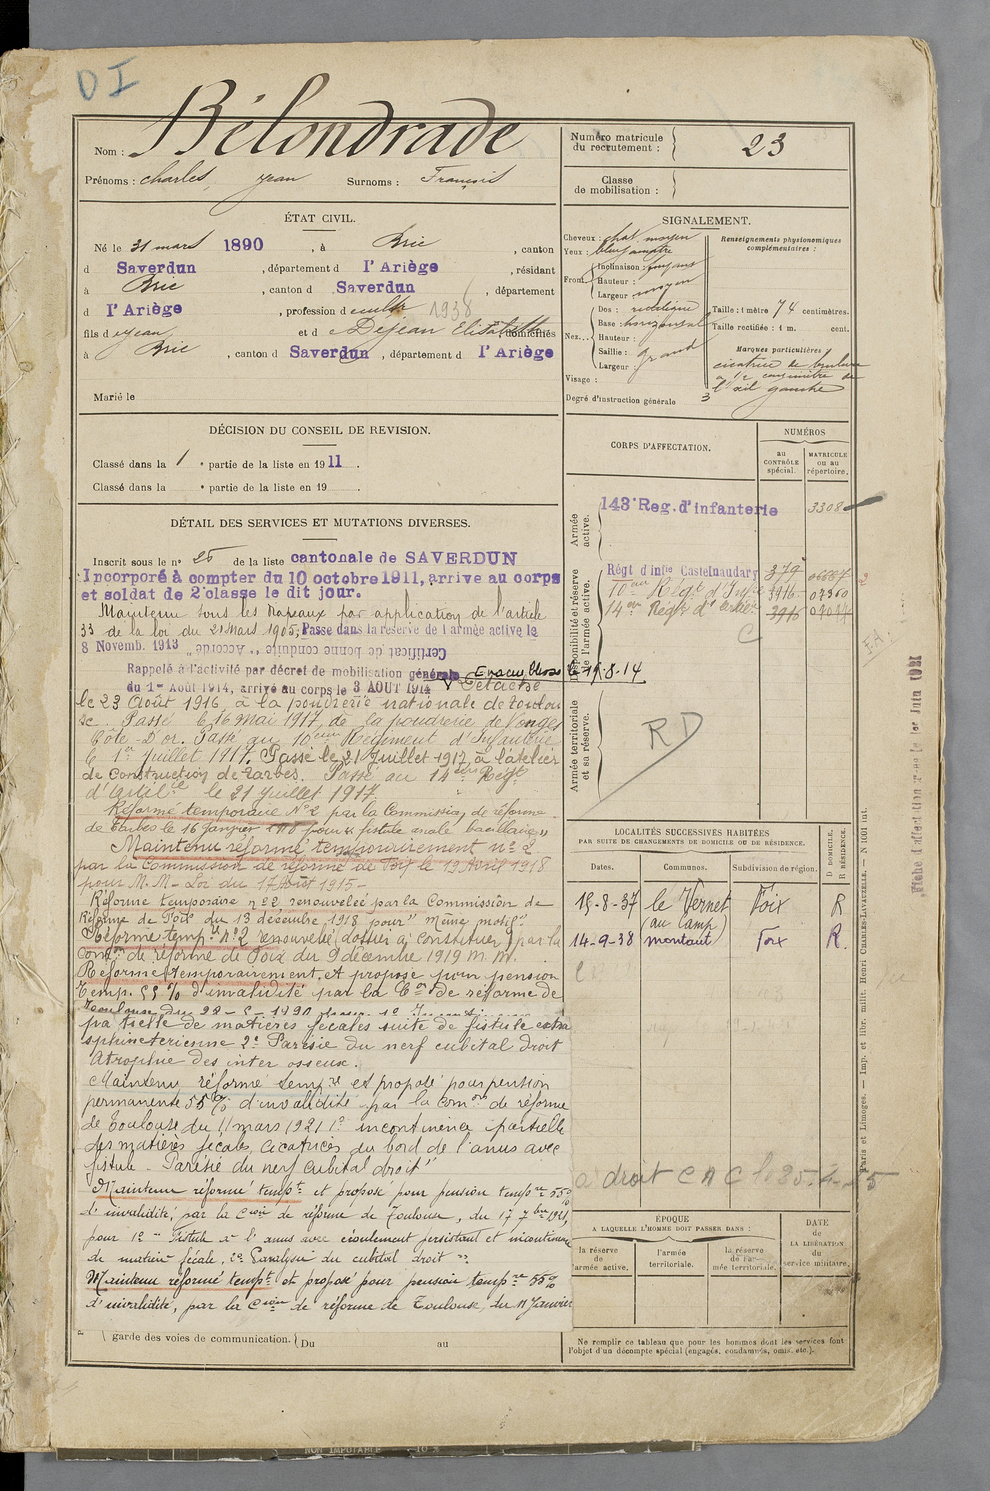 DI
Nom : Bélondrade
Prénoms : Charles, Jean Surnoms : François
Numéro matricule
du recrutement : 23
Classe
de mobilisation :
ÉTAT CIVIL.
Né le 31 mars 1890, à Brie, canton
d Saverdun, département d l'Ariège, résidant
à Brie, canton d Saverdun, département
d l'Ariège, profession d cultr 1938
fils d Jean et d Dejean Elisabeth, domiciliés
à Brie, canton d Saverdun, département d l'Ariège
Marié le
SIGNALEMENT.
Cheveux : chat. moyen
Yeux :
Front
Inclinaison : fuyant
Hauteur :
Largeur : moyen
Nez
Dos : rectiligne
Base : horizontal
Hauteur :
Saillie : grand
Largeur :
Visage :
Degré d'instruction générale 3
Renseignements physionomiques
complémentaires :
Taille : 1 mètre 74 centimètres.
Taille rectifiée : 1 m. cent.
Marques particulières
cicatrice de brulure
à 1/2 centimètre de
l'œil gauche
DÉCISION DU CONSEIL DE REVISION.
Classé dans la 1e partie de la liste en 1911.
Classé dans la e partie de la liste en 19 .
DÉTAIL DES SERVICES ET MUTATIONS DIVERSES.
Inscrit sous le n° 25 de la liste cantonale de SAVERDUN
Incorporé à compter du 10 octobre 1911, arrive au corps
et soldat de 2e classe le dit jour.
Maintenu sous les drapeaux par application de l'article
33 de la loi du 21 Mars 1905; Passe dans la réserve de l'armée active le
8 Novemb. 1913 Certificat de bonne conduite " Accordé "
Rappelé à l'activité par décret de mobilisation générale Evacué, blessé le 19.8.14
du 1er Août 1914, arrivé au corps le 3 AOUT 1914 Détaché
le 23 Août 1916, à la poudrerie nationale de Toulou
se. Passé le 16 Mai 1917, de la poudrerie de Vonges
Côte-D'or. Passé au 10eme Régiment d'Infanterie
le 1er Juillet 1917. Passé le 21 Juillet 1917 à l'atelier
de Construction de Tarbes. Passé au 14eme Régt
d'Artillie le 21 Juillet 1917
Réformé temporaire N° 2 par la Commission de réforme
de Tarbes le 16 Janvier 1918 pour "fistule anale bacillaire"
Maintenu réformé temporairement n° 2
par la Commission de réforme de Foix le 19 Avril 1918
pour M.M - Loi du 17 Août 1915-
Réforme temporaire n° 2 renouvelée par la Commission de
Réforme de Foix du 13 décembre 1918 pour "même motif"
Réforme temp.re n° 2 renouvelé, dossier à constituer par la
Comon de réforme de Foix du 9 décembre 1919 M.M.
Réformé temporairement, et proposé pour pension
temp. 55% d'invalidité par la Con de réforme de
Toulouse du
partielle de matières fécales suite de fistule extra
sphincterienne 2° Parésie du nerf cubital droit
Atrophie des inter osseux.
Maintenu réformé tempre et proposé pour pension
permanente 55% d'invalidité par la Comon de réforme
de Toulouse du 11 mars 1921 1° incontinence partielle
des matières fécales, cicatrices du bord de l'anus avec
fistule - Parésie du nerf cubital droit"
Maintenu réformé tempt et proposé pour pension tempre 55%
d'invalidité, par la Csion de réforme de Toulouse, du 17 7bre 1921,
pour 1° - Fistule à l'anus avec écoulement persistant et incontinence
de matière fécale, 2° Paralysie du cubital droit"
Maintenu réformé tempt et proposé pour pension tempre 55%
d'invalidité, par la Csion de réforme de Toulouse, du 11 Janvier
garde des voies de communication. Du au
CORPS D'AFFECTATION.
NUMÉROS
au
CONTRÔLE
spécial.
MATRICULE
ou au
répertoire.
Armée
active.
143e Reg. d'infanterie 3308
Disponibilité et réserve
de l'armée active.
Régt d'infie Castelnaudary 379
10eme Régt d'Infie 3916
14eme Régt d'Artillie 3916
C
Armée territoriale
et sa réserve.
RD
LOCALITÉS SUCCESSIVES HABITÉES
PAR SUITE DE CHANGEMENTS DE DOMICILE OU DE RÉSIDENCE.
Dates. Communes. Subdivision de région. D DOMICILE. R RÉSIDENCE.
15-8-37 le Vernet Foix R
(au Camp)
14-9-38 montaut Foix R.
a droit C A C
ÉPOQUE
A LAQUELLE L'HOMME DOIT PASSER DANS :
la réserve
de
l'armée active.
l'armée
territoriale.
la réserve
de l'ar-
mée territoriale.
DATE
de
LA LIBÉRATION
du
service militaire.
Ne remplir ce tableau que pour les hommes dont les services font
l'objet d'un décompte spécial (engagés, condamnés, omis, etc.).
Paris et Limoges. — Imp. et libr. milit. Henri CHARLES-LAVAUZELLE. — N 1001 int.
NON IMPUTABLE